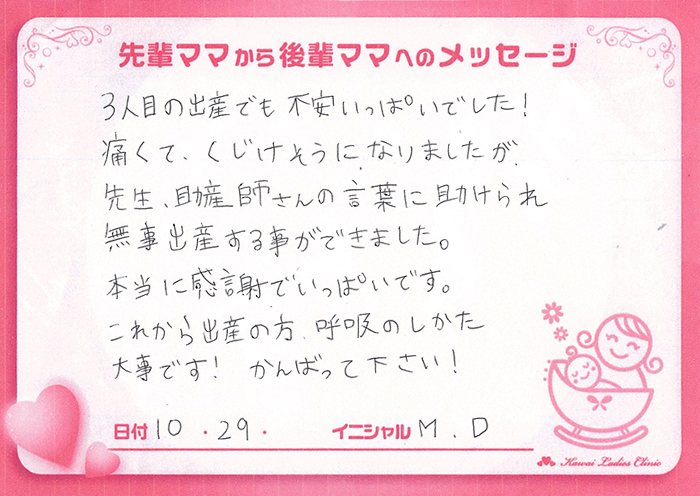 先輩ママから後輩ママへのメッセージ
3人目の出産でも不安いっぱいでした!
痛くて、くじけそうになりましたが
先生、助産師さんの言葉に助けられ
無事出産する事ができました。
本当に感謝でいっぱいです。
これから出産の方、呼吸のしかた
大事です! かんばって下さい!
日付 10 ・29・ イニシャル M.D
Kawai Ladies Clinic